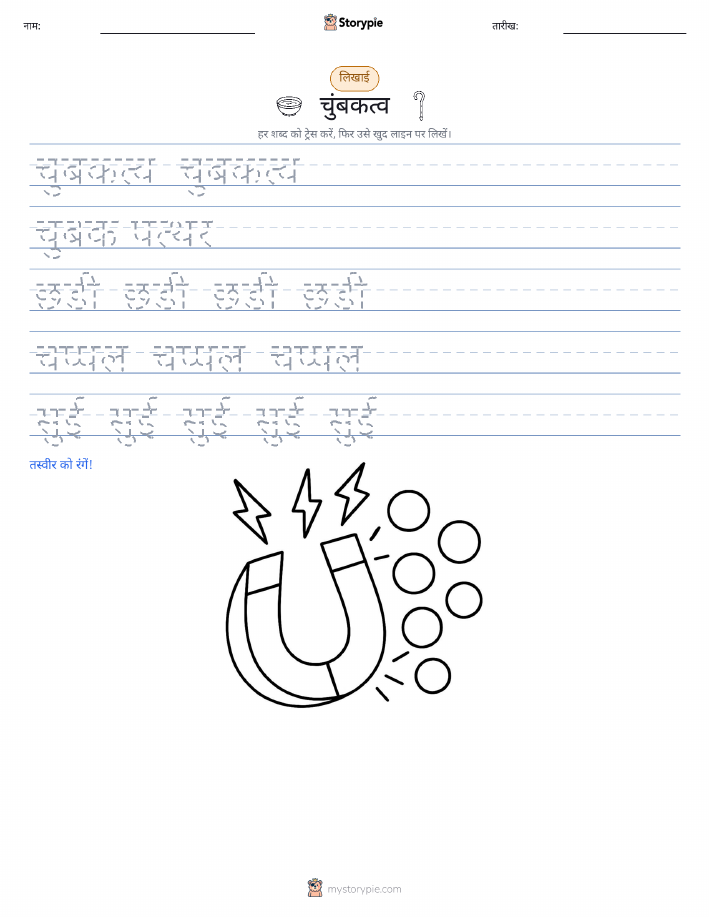 नाम:
Storypie
तारीख:
लिखाई
चुंबकत्व
हर शब्द को ट्रेस करें, फिर उसे खुद लाइन पर लिखें।
चुंबकत्व चुंबकत्व
चुंबक पत्थर
छड़ी छड़ी छड़ी छड़ी
चप्पल चप्पल चप्पल
सुई सुई सुई सुई सुई
तस्वीर को रंगें!
mystorypie.com